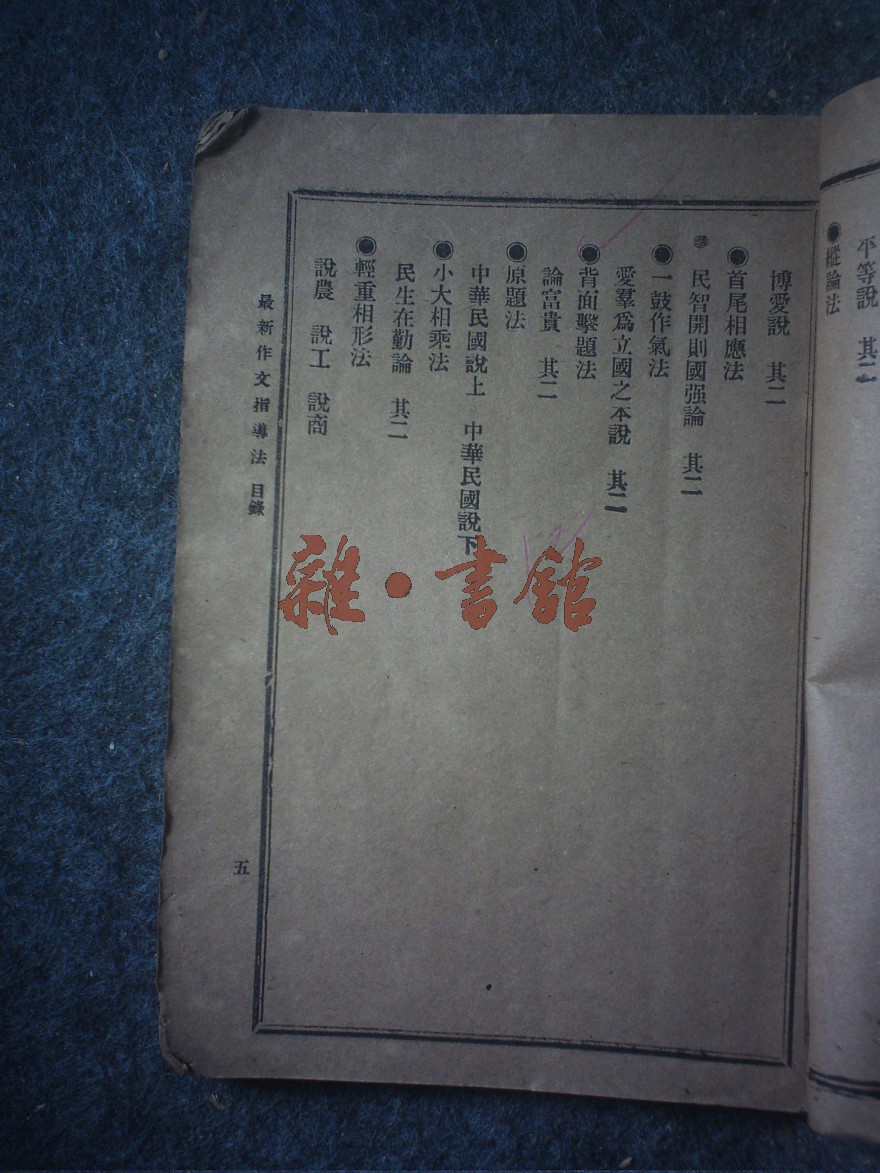 平等說　其二
●縱論法
博愛說　其二
●首尾相應法
民智開則國强論　其二
●一鼓作氣法
愛羣爲立國之本說　其二
●背面擊題法
論富貴　其二
●原題法
中華民國說上　中華民國說下
●小大相乘法
民生在勤論　其二
●輕重相形法
說農　說工　說商
最新作文指導法　目錄
五
雜·書館